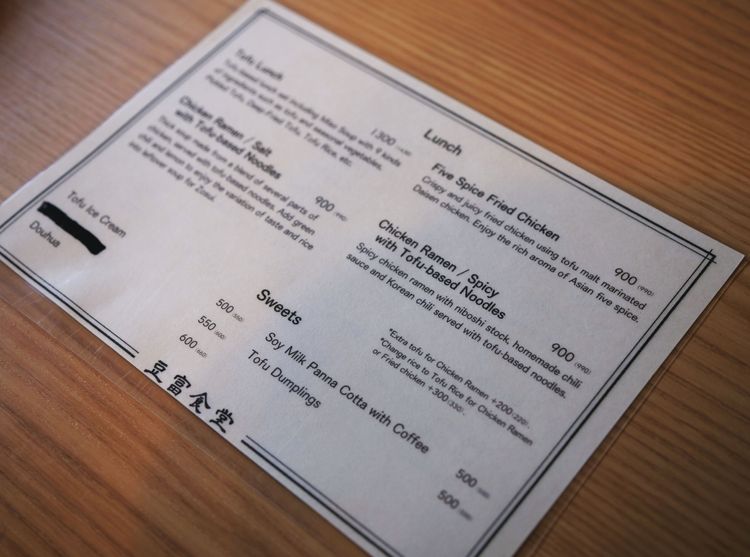 Lunch
Five Spice Fried Chicken
900 (990)
Crispy and juicy fried chicken using tofu malt marinated
Daisen chicken. Enjoy the rich aroma of Asian five spice.
Chicken Ramen / Spicy
with Tofu-based Noodles
900 (990)
Spicy chicken ramen with niboshi stock, homemade chili
sauce and Korean chili served with tofu-based noodles.
*Extra tofu for Chicken Ramen +200(220).
*Change rice to Tofu Rice for Chicken Ramen
or Fried chicken +300(330).
Tofu Lunch
1,300
Tofu-based lunch set including Miso Soup with 9 kinds
of ingredients such as tofu and seasonal vegetables,
Tofu, Deep-Fried Tofu, Tofu Rice, etc.
Chicken Ramen / Salt
with Tofu-based Noodles
900
Thick soup made from a blend of several parts of
chicken, served with tofu-based noodles. Add green
chili and lemon to enjoy the variation of taste and rice
into leftover soup for Zosui.
Sweets
Soy Milk Panna Cotta with Coffee 500
Tofu Dumplings 500
Tofu Ice Cream 500
550
Douhua 600
豆富食堂